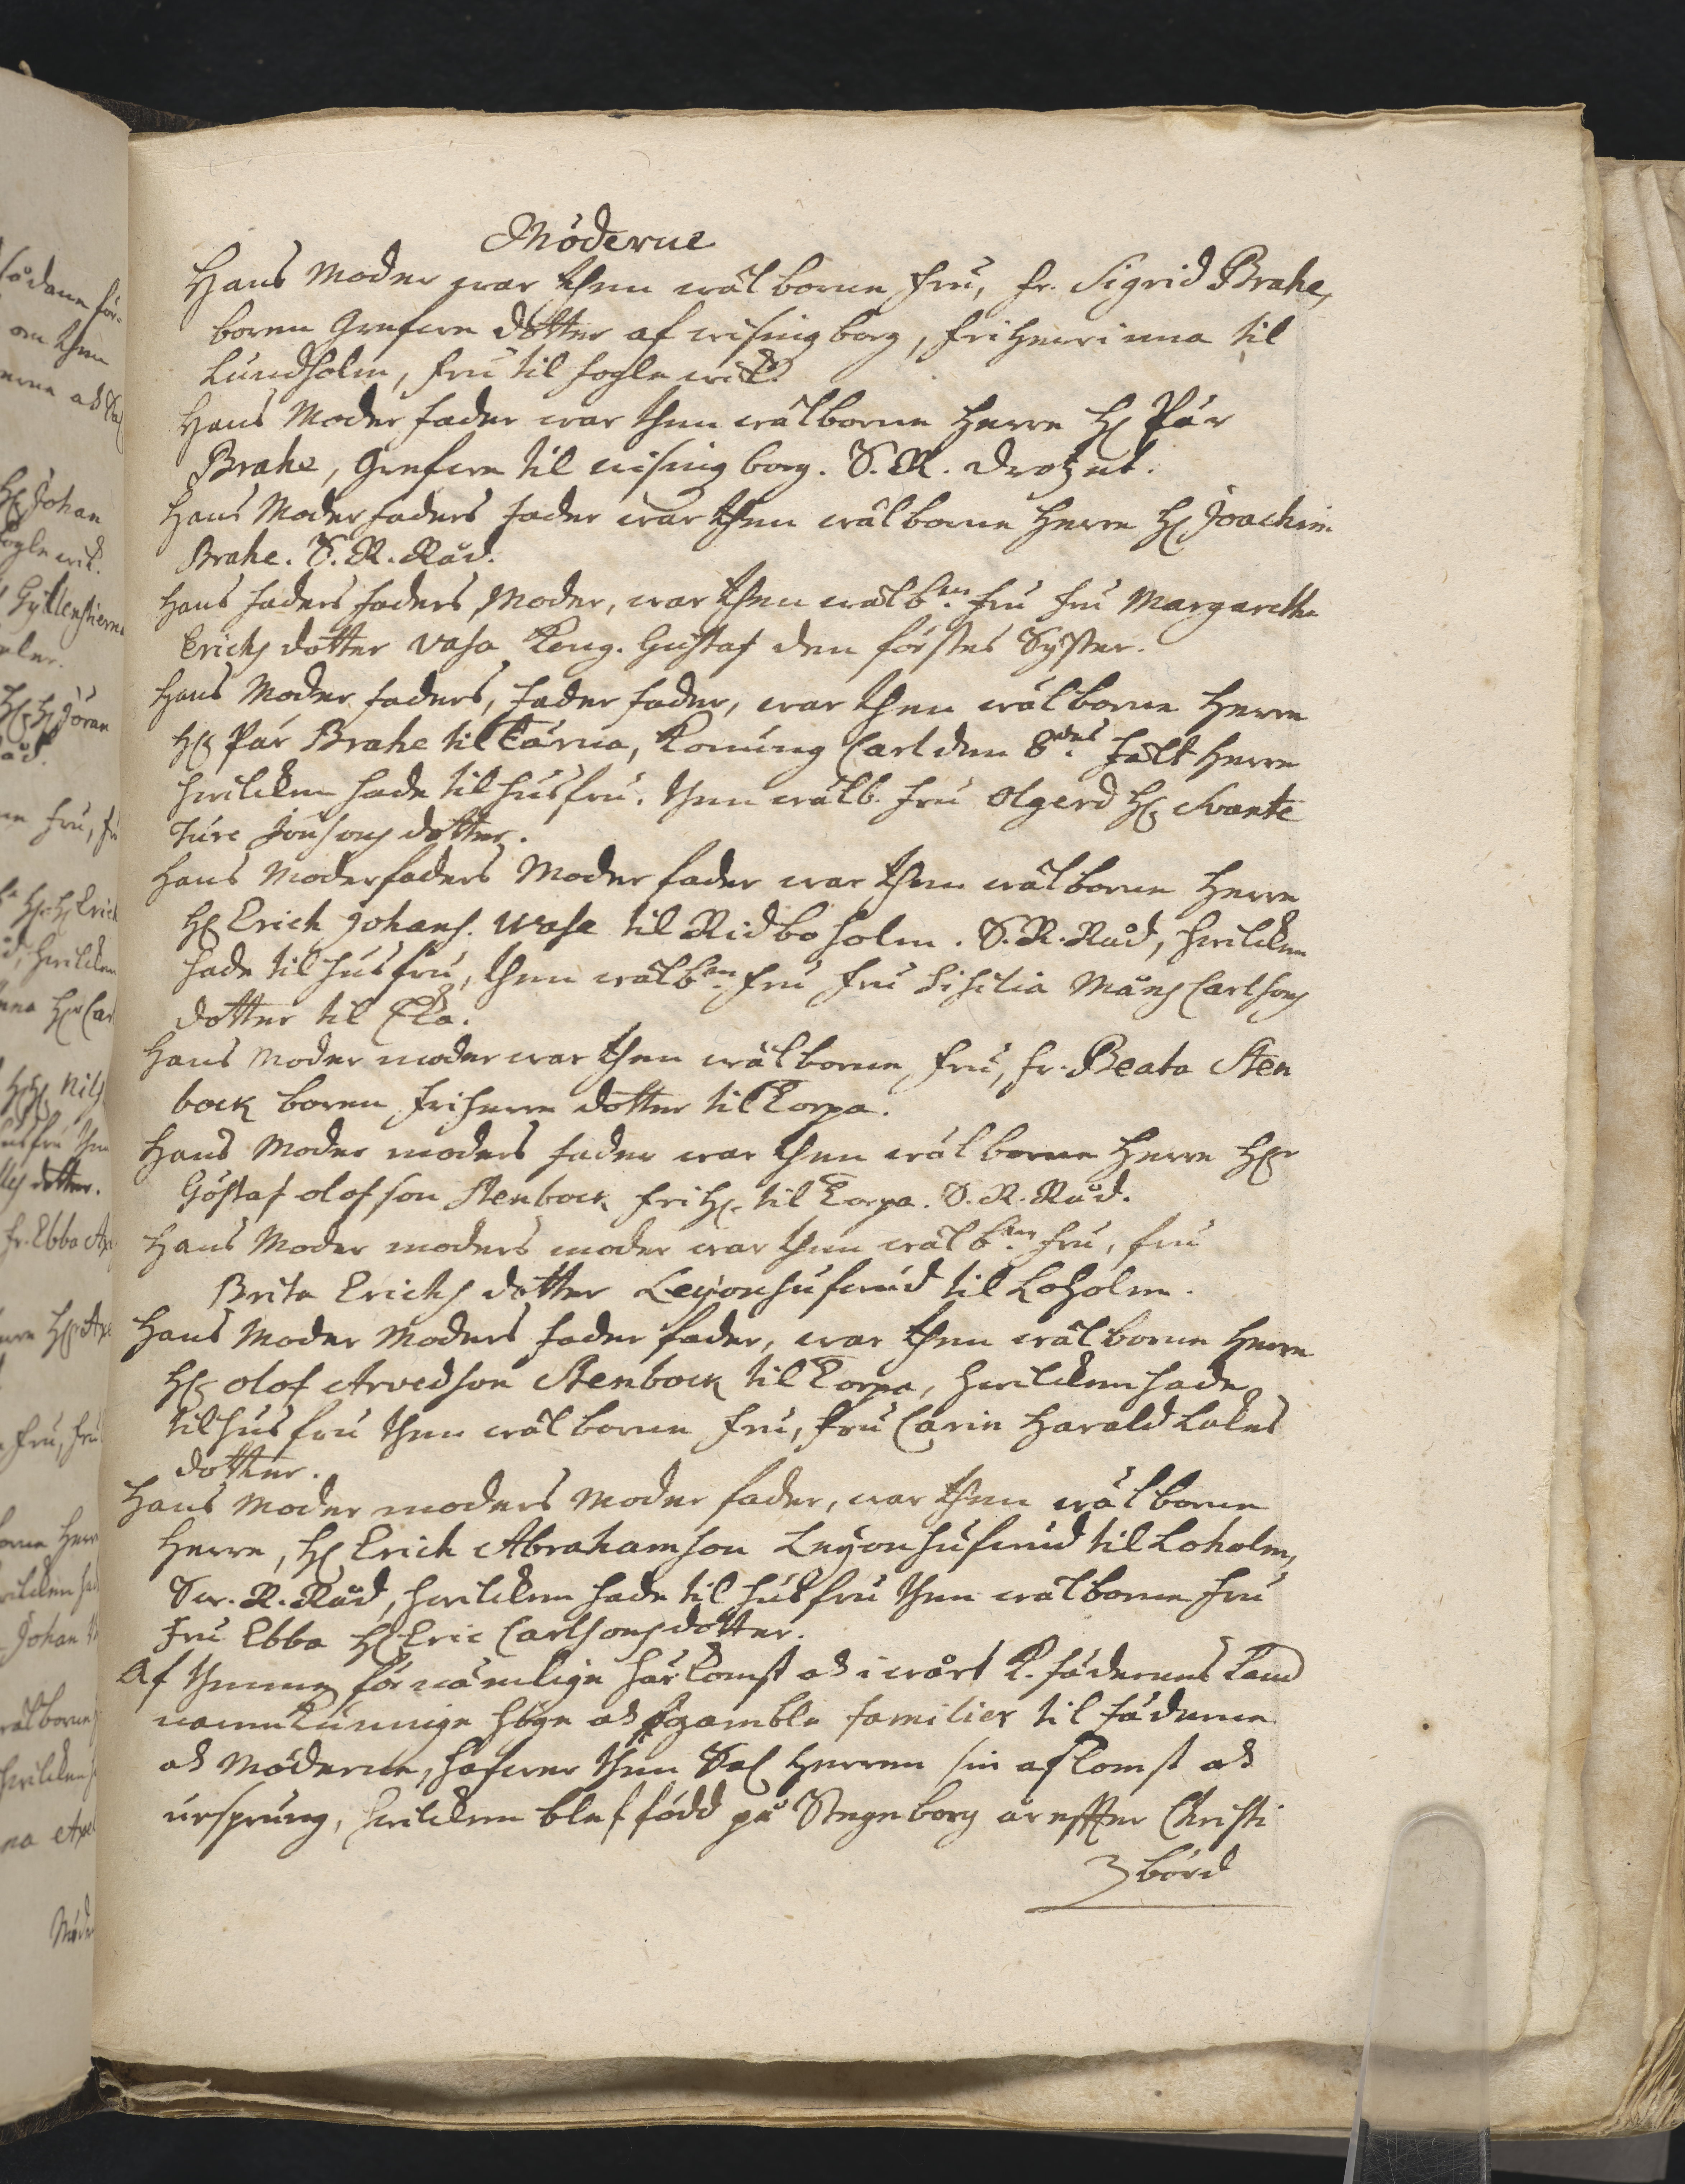 Möderne
Hans Moder war then wälborne fru, fr. Sigrid Brahe,
boren Grefwe dotter af wisingborg, friherrinna til
Lundholm, fru til foglewik.
Hans Moderfader war then wälborne Herre H: Pär
Brahe, Grefwe til wisingborg. S. R. Drotzet.
Hans Moderfaders fader war then wälborne Herre H: Joachim
Brahe. S. R. Råd.
Hans faders faders, Moder, war then wälb:ne fru fru Margaretha
Erichs dotter Vasa Kong. Gustaf den förstes Syster.
Hans Moder faders, fader fader, war then wälborne Herre
H: Pär Brahe til Tärna, Konung Carl den 8:des fält Herre
hwilcken hade til husfru, then wälb. fru Olgerd H: Svante
Ture Jönsons dotter.
Hans Moderfaders Moder fader war then wälborne Herre
H: Erich Johans. Wasa til Ridboholm. S. R. Råd, hwilcken
hade til husfru, then wälb:ne fru fru Sisilia Måns Carlsons
dotter til Eka.
Hans Moder moder war then wälborne, fru, fr. Beata Sten
bock boren friherre dotter til Torpa.
Hans Moder moders fader war then wälborne Herre H:r
Göstaf olofson Stenbock friH:r til Torpa. S. R. Råd.
Hans Moder moders moder war then wälb:ne fru, fru
Brita Erichs dotter Leyonhufwud til Loholm.
Hans Moder Moders fader fader, war then wälborne Herre
H: olof Arvedson Stenbock til Torpa, hwilcken hade
til husfru then wälborne fru, fru Carin Harald Lakes
dotter.
Hans Moder moders Moder fader, war then wälborne
Herre, H: Erich Abrahamson Leyonhufwud til Loholm,
Sw. R. Råd, hwilcken hade til husfru then wälborne fru
fru Ebba H: Eric Carlsons dotter.
Af thenne förnämlige härkomst ok i wårt K. fädernes Land
namnkunnige höge ok gamble familier til fäderne
ok Möderne, hafwer then Sal Herren sin afkomst ok
ursprung, hwilcken blef född på Stegeborg år effter Christi
börd